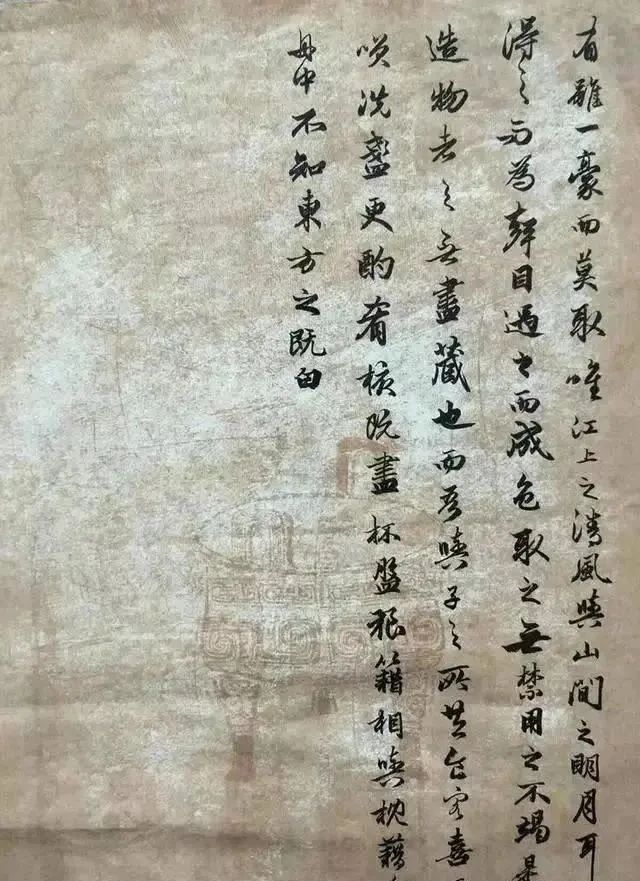 有雖一豪而莫取唯江上之清風與山間之明月耳
得之而為聲目遇之而成色取之無禁用之不竭是
造物者之無盡藏也而吾與子之所共食客喜
咲洗盞更酌肴核既盡杯盤狼籍相與枕藉
舟中不知東方之既白